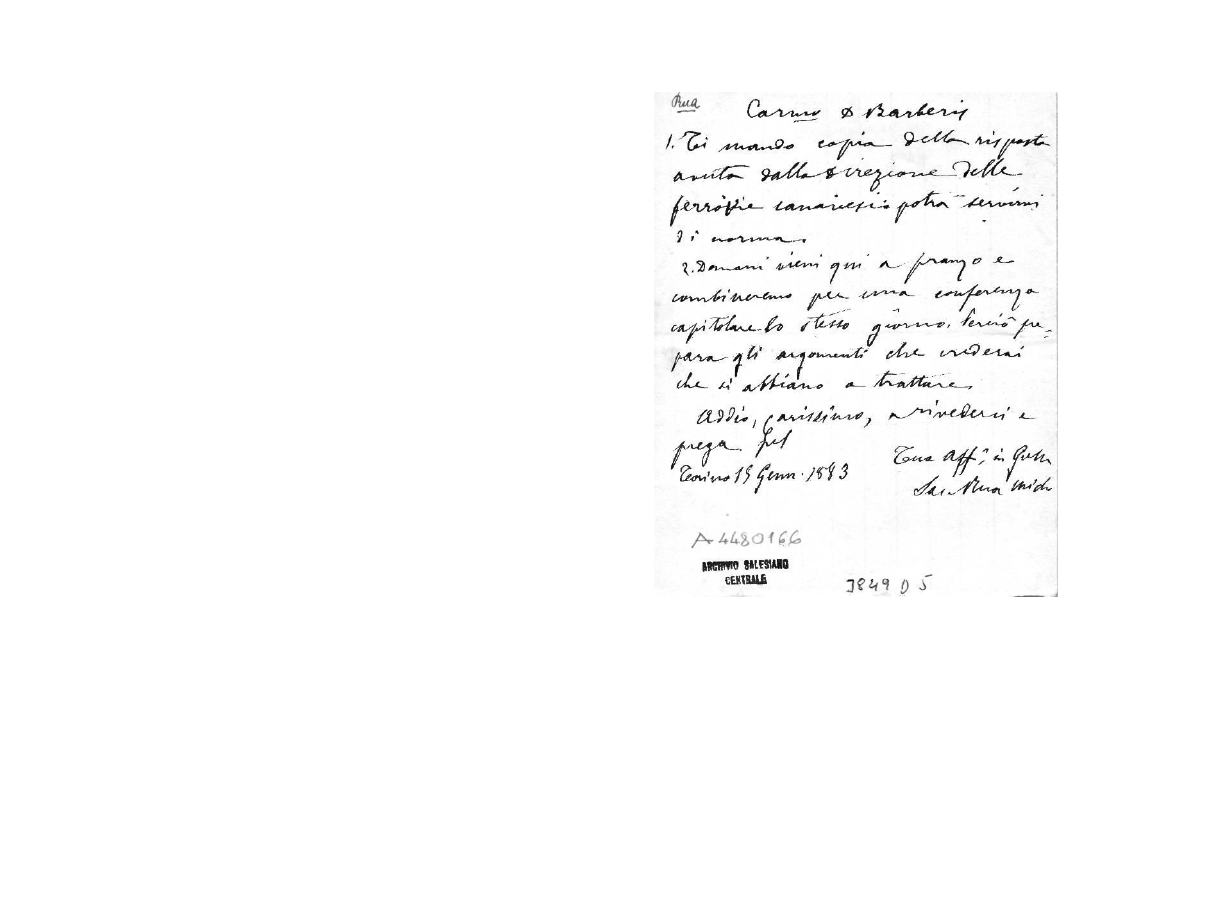 Rua
Car.mo D Barberis
1. Ti mando copia della risposta
avuta dalla direzione delle
ferrovie canavesi: potrà servirvi
di norma.
2. Domani vieni qui a pranzo e
combineremo per una conferenza
capitolare lo stesso giorno. Perciò pre-
para gli argomenti che crederai
che si abbiano a trattare.
Addio, carissimo, a rivederci e
prega pel
Tuo Aff. in G
Torino 19 Genn. 1883
Sac. Rua Mich
A4480166
ARCHIVIO SALESIANO
CENTRALE
3849 D 5